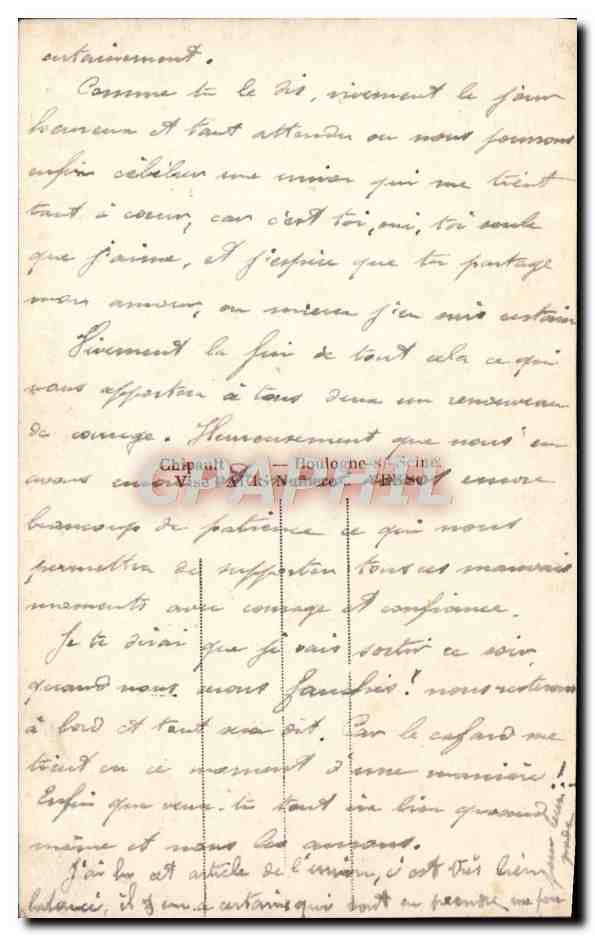 certainement.
Comme tu le dis, vivement le jour
heureux et tant attendu ou nous pourrons
enfin célébrer une union qui me tient
tant à coeur, car c'est toi, oui, toi seule
que j'aime, et j'espère que tu partage
mon amour, ou mieux j'en suis certain
Vivement la fin de tout cela ce qui
nous apportera à tous deux un renouveau
de courage. Heureusement que nous en
Chipault — Boulogne-s/-Seine
avons encore
Visé PARIS Numéro
VERSO
CPAPHIL
beaucoup de patience ce qui nous
permettra de supporter tous ces mauvais
moments avec courage et confiance.
Je te dirai que je vais sortir ce soir
quand nous serons fauchés! nous resterons
à bord et tout sera dit. Car le cafard me
tient en ce moment d'une manière!!
Enfin que veux-tu tout ira bien quand
même et nous les aurons.
J'ai lu cet article de l'union, c'est très bien
balancé, il y en a certains qui vont en prendre
pour leur